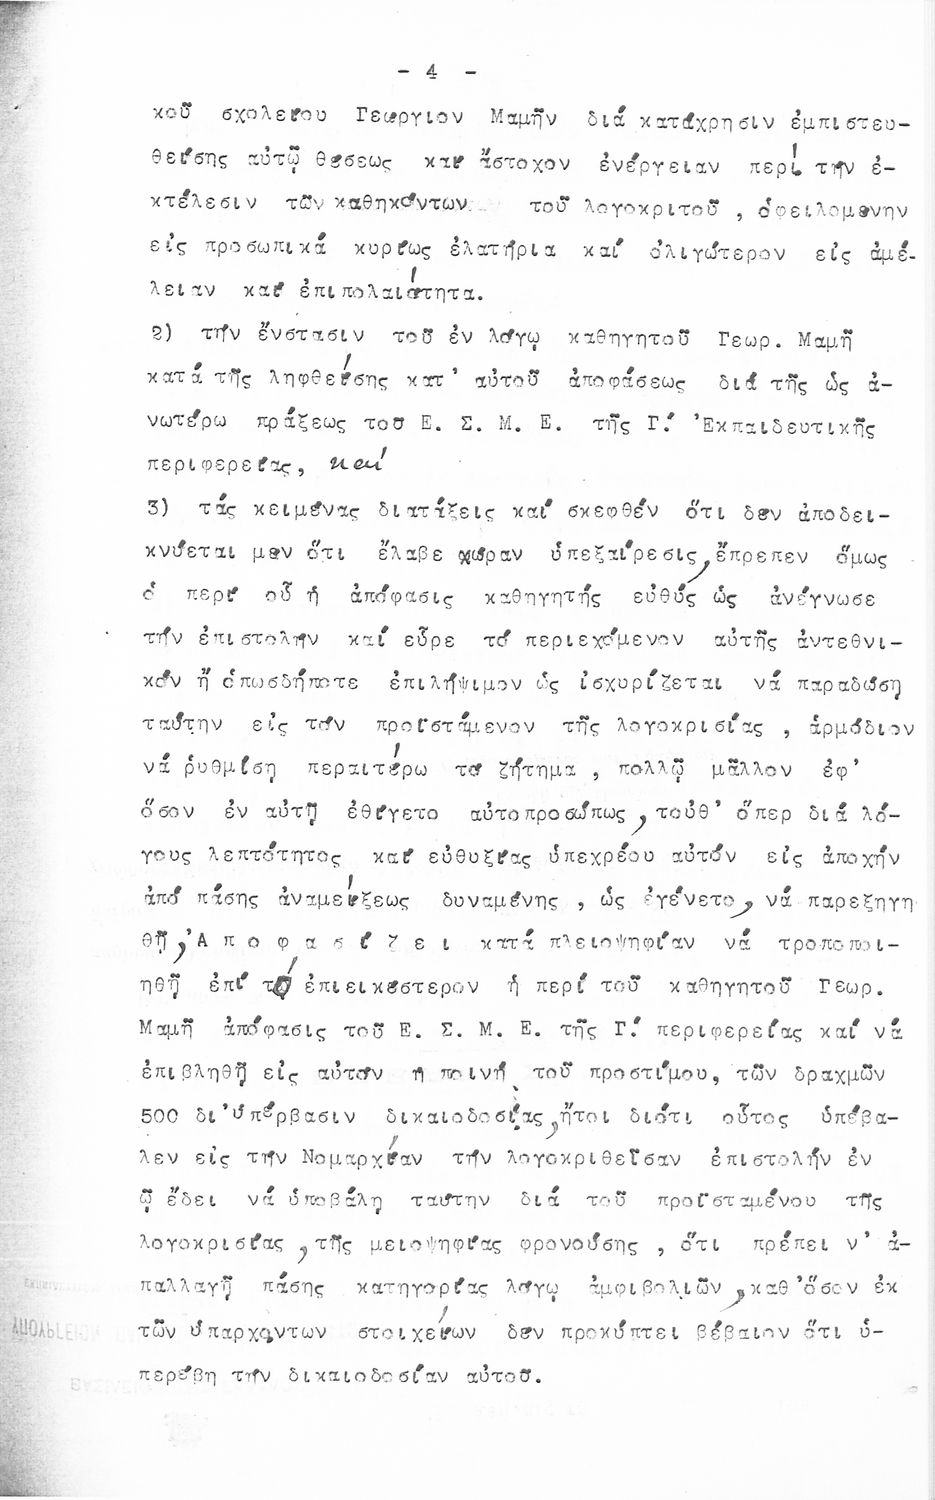 - 4 -
κοῦ σχολείου Γεώργιον Μαμῆν διά κατάχρησιν ἐμπιστευ-
θείσης αὐτῷ θέσεως καί ἄστοχον ἐνέργειαν περί τήν ἐ-
κτέλεσιν τῶν καθηκόντων τοῦ λογοκριτοῦ , ὀφειλομένην
εἰς προσωπικά κυρίως ἐλατήρια καί ὀλιγώτερον εἰς ἀμέ-
λειαν καί ἐπιπολαιότητα.
2) τήν ἔνστασιν τοῦ ἐν λόγῳ καθηγητοῦ Γεωρ. Μαμῆ
κατά τῆς ληφθείσης κατ' αὐτοῦ ἀποφάσεως διά τῆς ὡς ἀ-
νωτέρω πράξεως τοῦ Ε. Σ. Μ. Ε. τῆς Γ.' Ἐκπαιδευτικῆς
περιφερείας, καί
3) τάς κειμένας διατάξεις καί σκεφθέν ὅτι δέν ἀποδει-
κνύεται μέν ὅτι ἔλαβε χώραν ὑπεξαίρεσις, ἔπρεπεν ὅμως
ὁ περί οὗ ἡ ἀπόφασις καθηγητής εὐθύς ὡς ἀνέγνωσε
τήν ἐπιστολήν καί εὗρε τό περιεχόμενον αὐτῆς ἀντεθνι-
κόν ἤ ὁπωσδήποτε ἐπιλήψιμον ὡς ἰσχυρίζεται νά παραδώση
ταύτην εἰς τόν προϊστάμενον τῆς λογοκρισίας , ἁρμόδιον
νά ρυθμίση περαιτέρω τό ζήτημα , πολλῷ μᾶλλον ἐφ'
ὅσον ἐν αὐτῇ ἐθίγετο αὐτοπροσώπως, τοῦθ' ὅπερ διά λό-
γους λεπτότητος καί εὐθυξίας ὑπεχρέου αὐτόν εἰς ἀποχήν
ἀπό πάσης ἀναμείξεως δυναμένης , ὡς ἐγένετο, νά παρεξηγη
θῇ, Ἀ π ο φ α σ ί ζ ε ι κατά πλειοψηφίαν νά τροποποι-
ηθῇ ἐπί τό ἐπιεικέστερον ἡ περί τοῦ καθηγητοῦ Γεωρ.
Μαμῆ ἀπόφασις τοῦ Ε. Σ. Μ. Ε. τῆς Γ.' περιφερείας καί νά
ἐπιβληθῇ εἰς αὐτόν ἡ ποινή τοῦ προστίμου, τῶν δραχμῶν
500 δι' ὑπέρβασιν δικαιοδοσίας, ἤτοι διότι οὗτος ὑπέβα-
λεν εἰς τήν Νομαρχίαν τήν λογοκριθεῖσαν ἐπιστολήν ἐν
ᾧ ἔδει νά ὑποβάλη ταύτην διά τοῦ προϊσταμένου τῆς
λογοκρισίας, τῆς μειοψηφίας φρονούσης , ὅτι πρέπει ν' ἀ-
παλλαγῇ πάσης κατηγορίας λόγῳ ἀμφιβολιῶν, καθ' ὅσον ἐκ
τῶν ὑπαρχόντων στοιχείων δέν προκύπτει βέβαιον ὅτι ὑ-
περέβη τήν δικαιοδοσίαν αὐτοῦ.